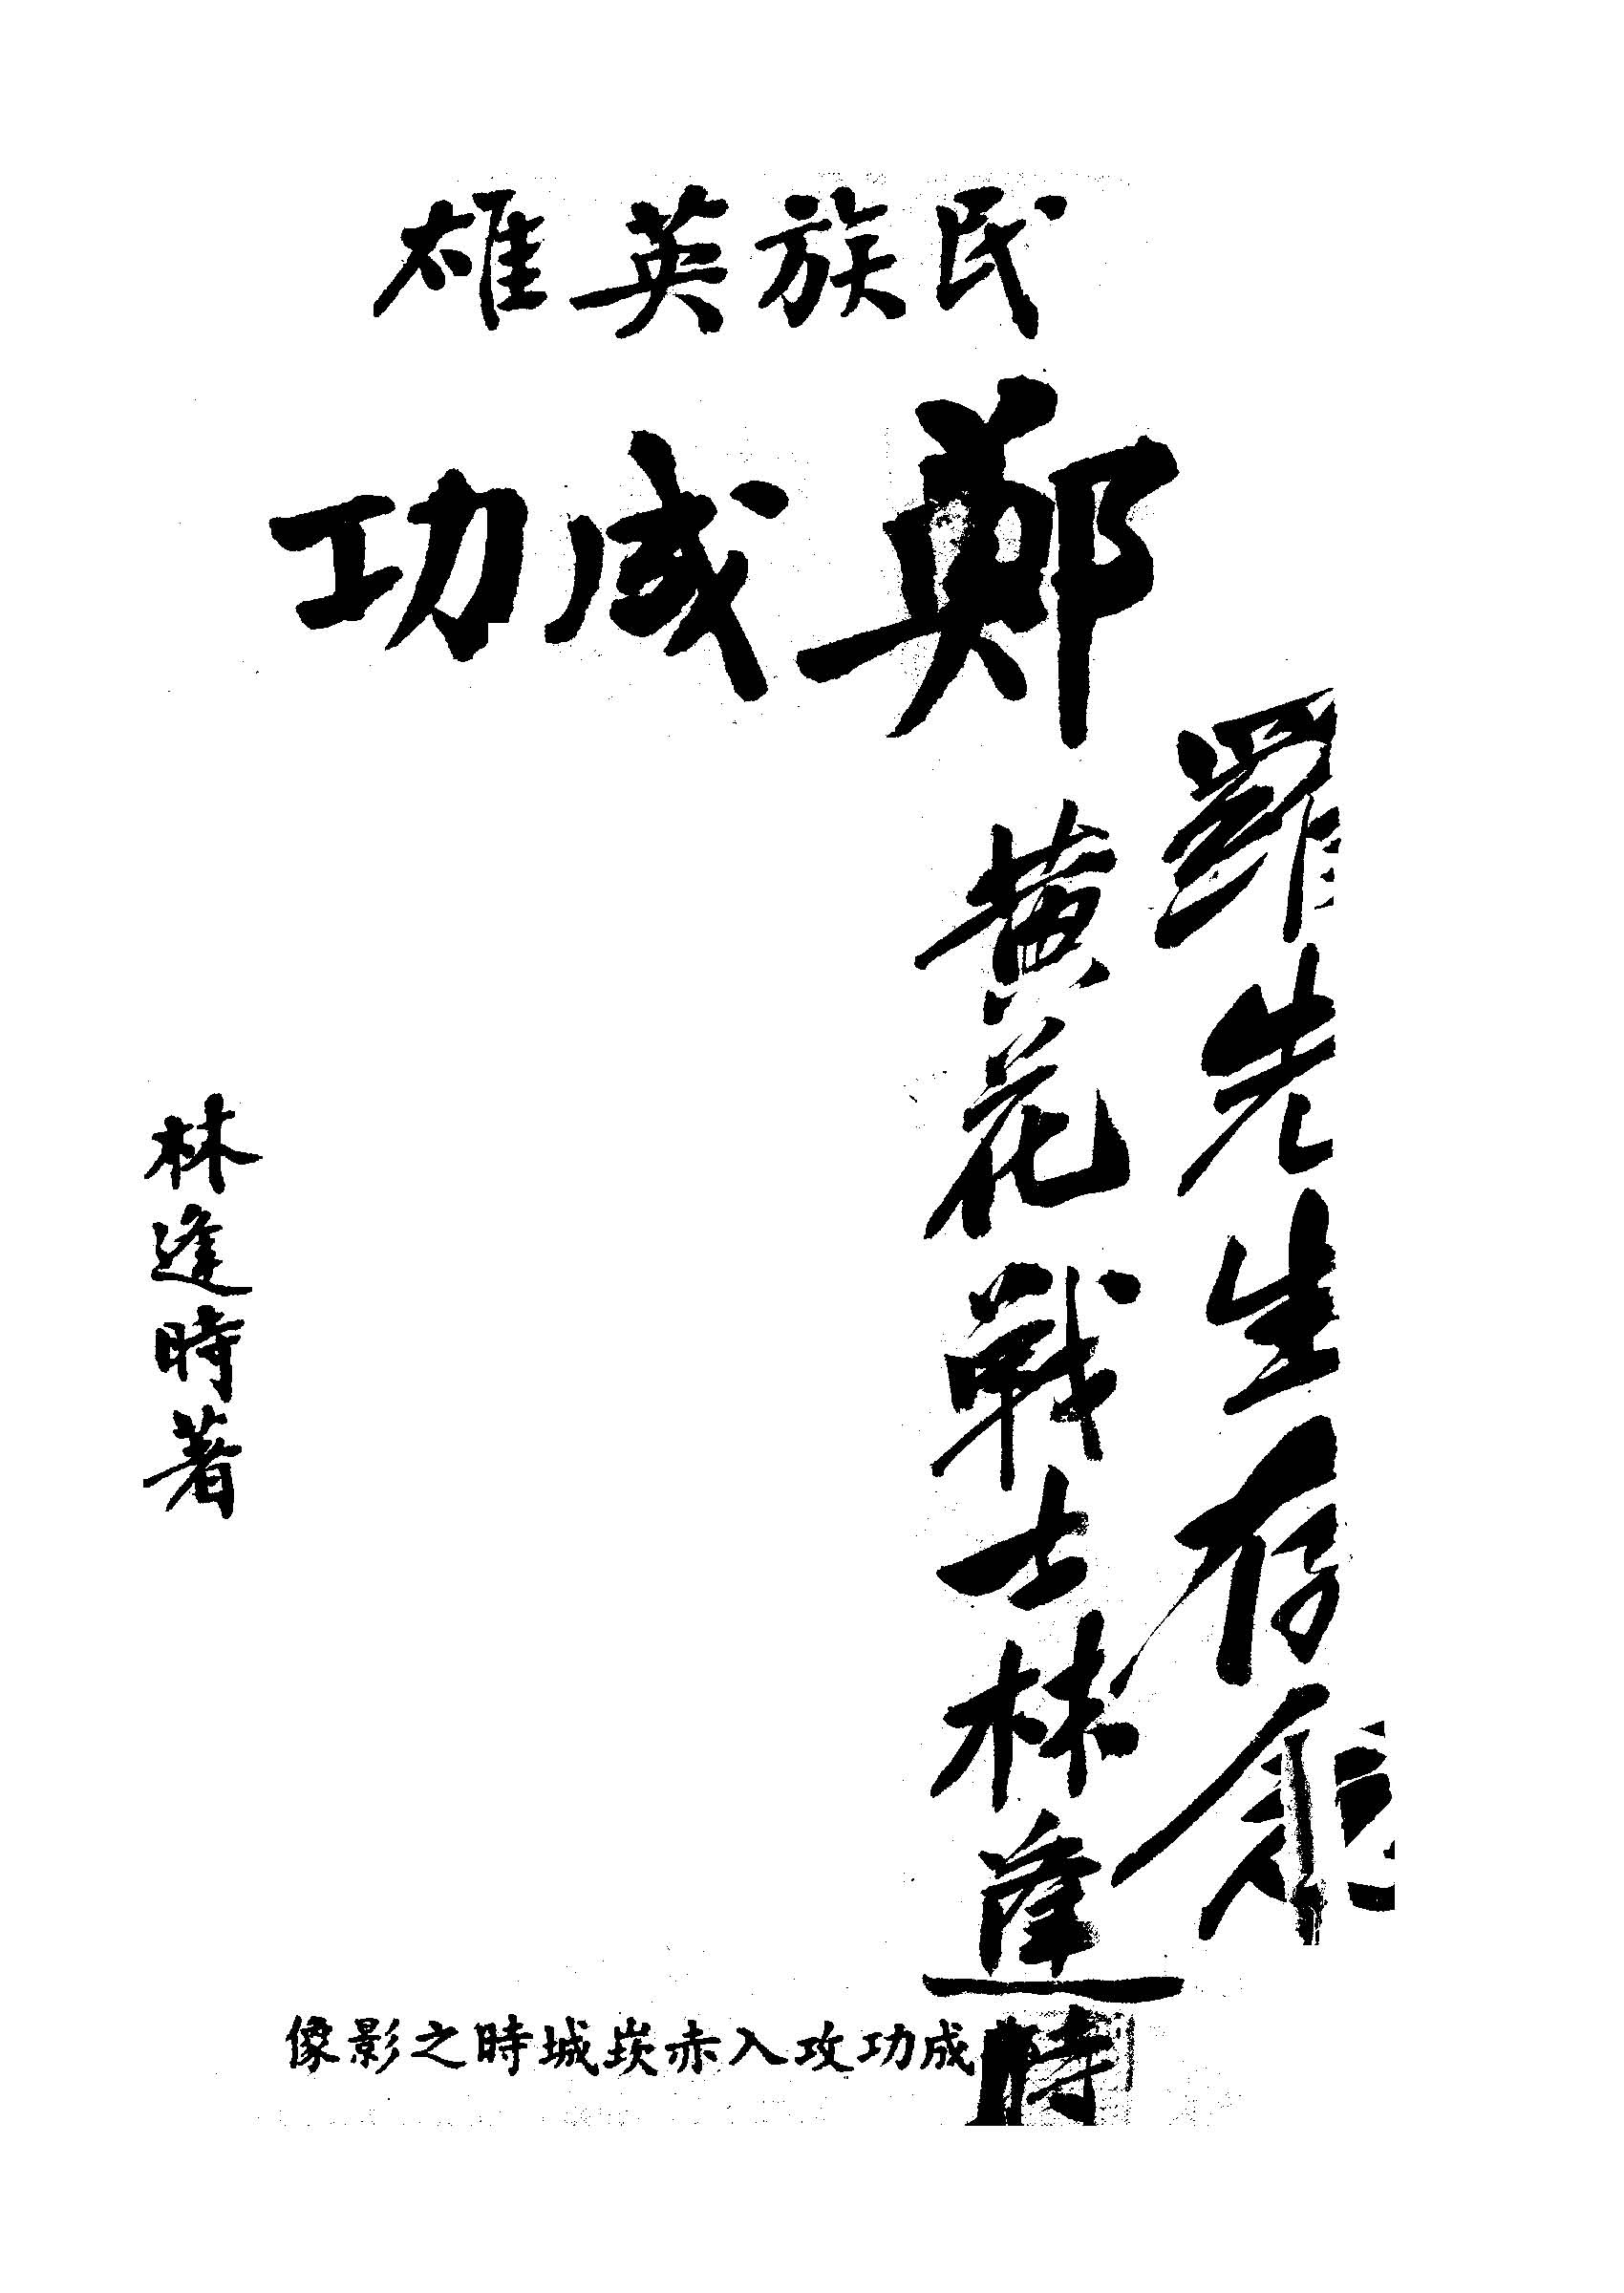 民族英雄
鄭成功
羅先生存念
黃花戰士林逢時
林逢時著
成功攻入赤崁城時之影像